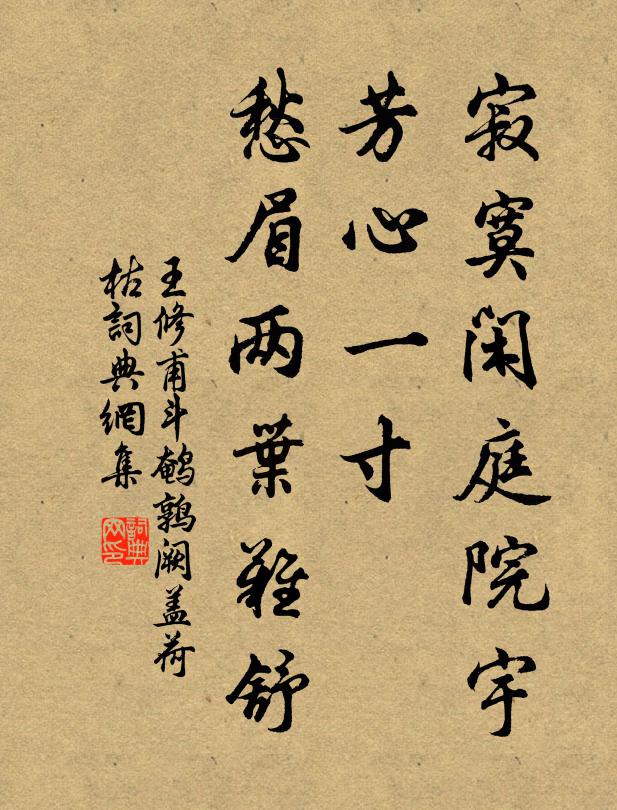 寂寞闲庭院宇
芳心一寸
愁眉两葉難舒
王修甫斗鹌鹑阙盖荷
枯詞典網集
詞典
网印